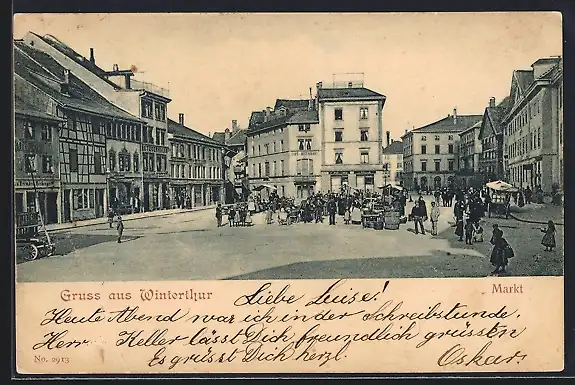 Gruss aus Winterthur
Markt
Liebe Luise!
Heute Abend war ich in der Schreibstunde,
Herr Keller lässt Dich freundlich grüssen
Es grüsst Dich herzl.
Oskar.
No. 2913